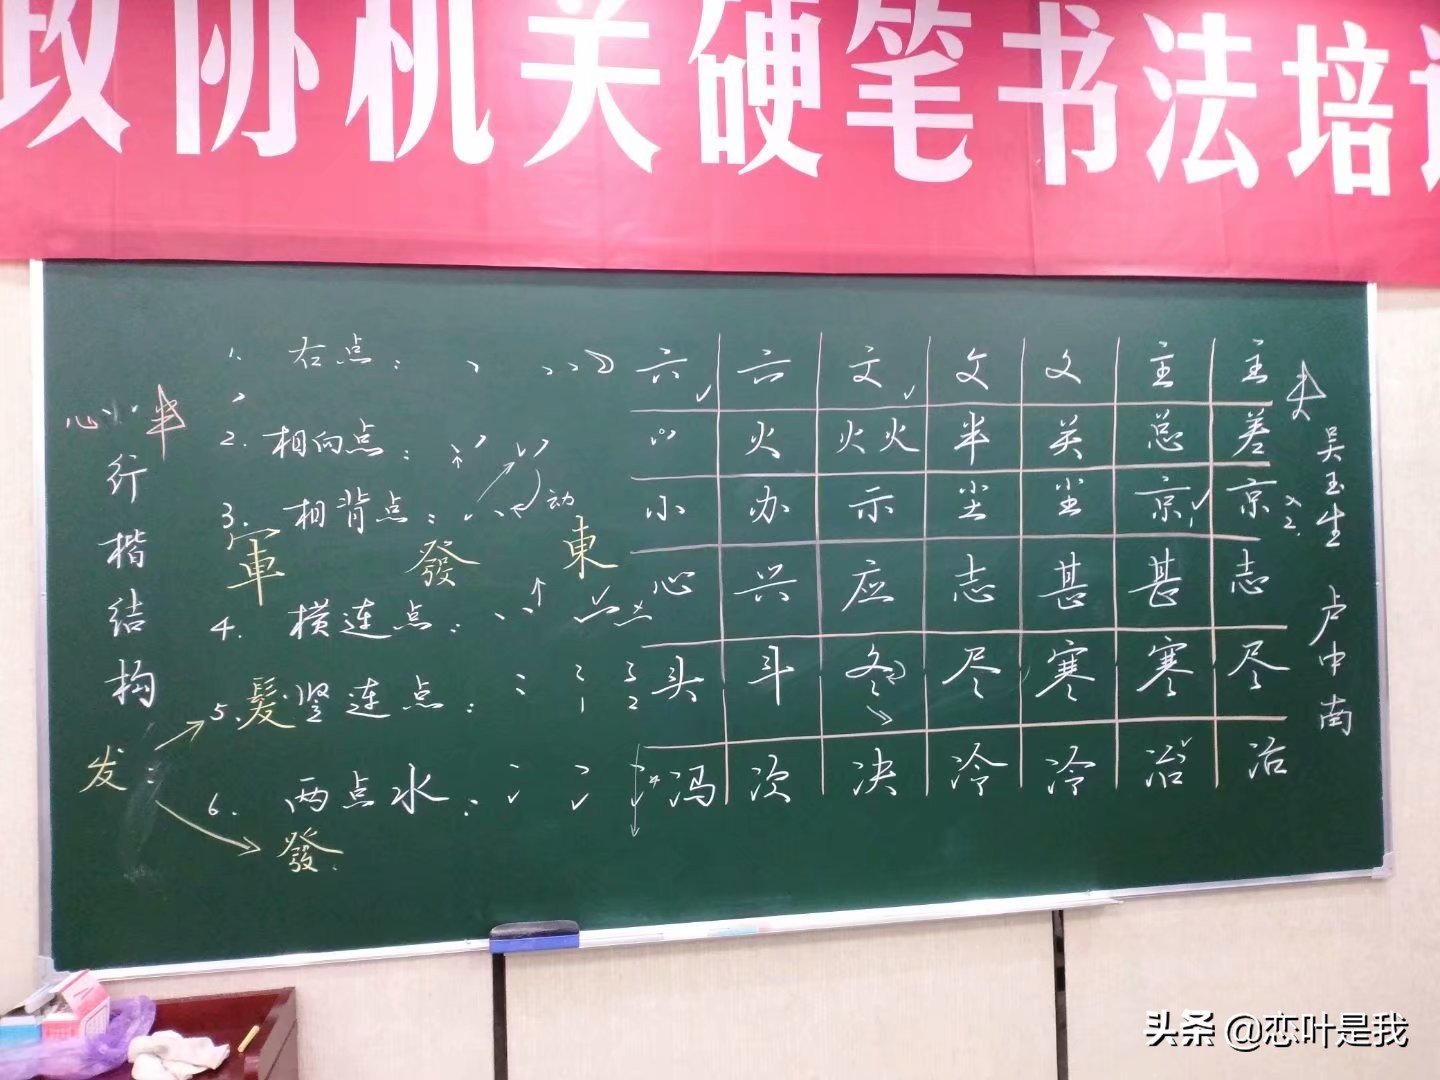 政协机关硬笔书法培
心 小 半
行楷结构
发
1. 右点：
2. 相向点：
3. 相背点： 动
軍 發 東
4. 横连点：
5. 竖连点： 3 3
髮 1 2
6. 两点水：
發
六 六 文 文 文 主 主
火 火火 半 关 总 差
小 办 示 尘 尘 京 京
心 兴 应 志 甚 甚 志
头 斗 冬 尽 寒 寒 尽
冯 次 决 冷 冷 治 治
吴玉生
卢中南
头条 @恋叶是我